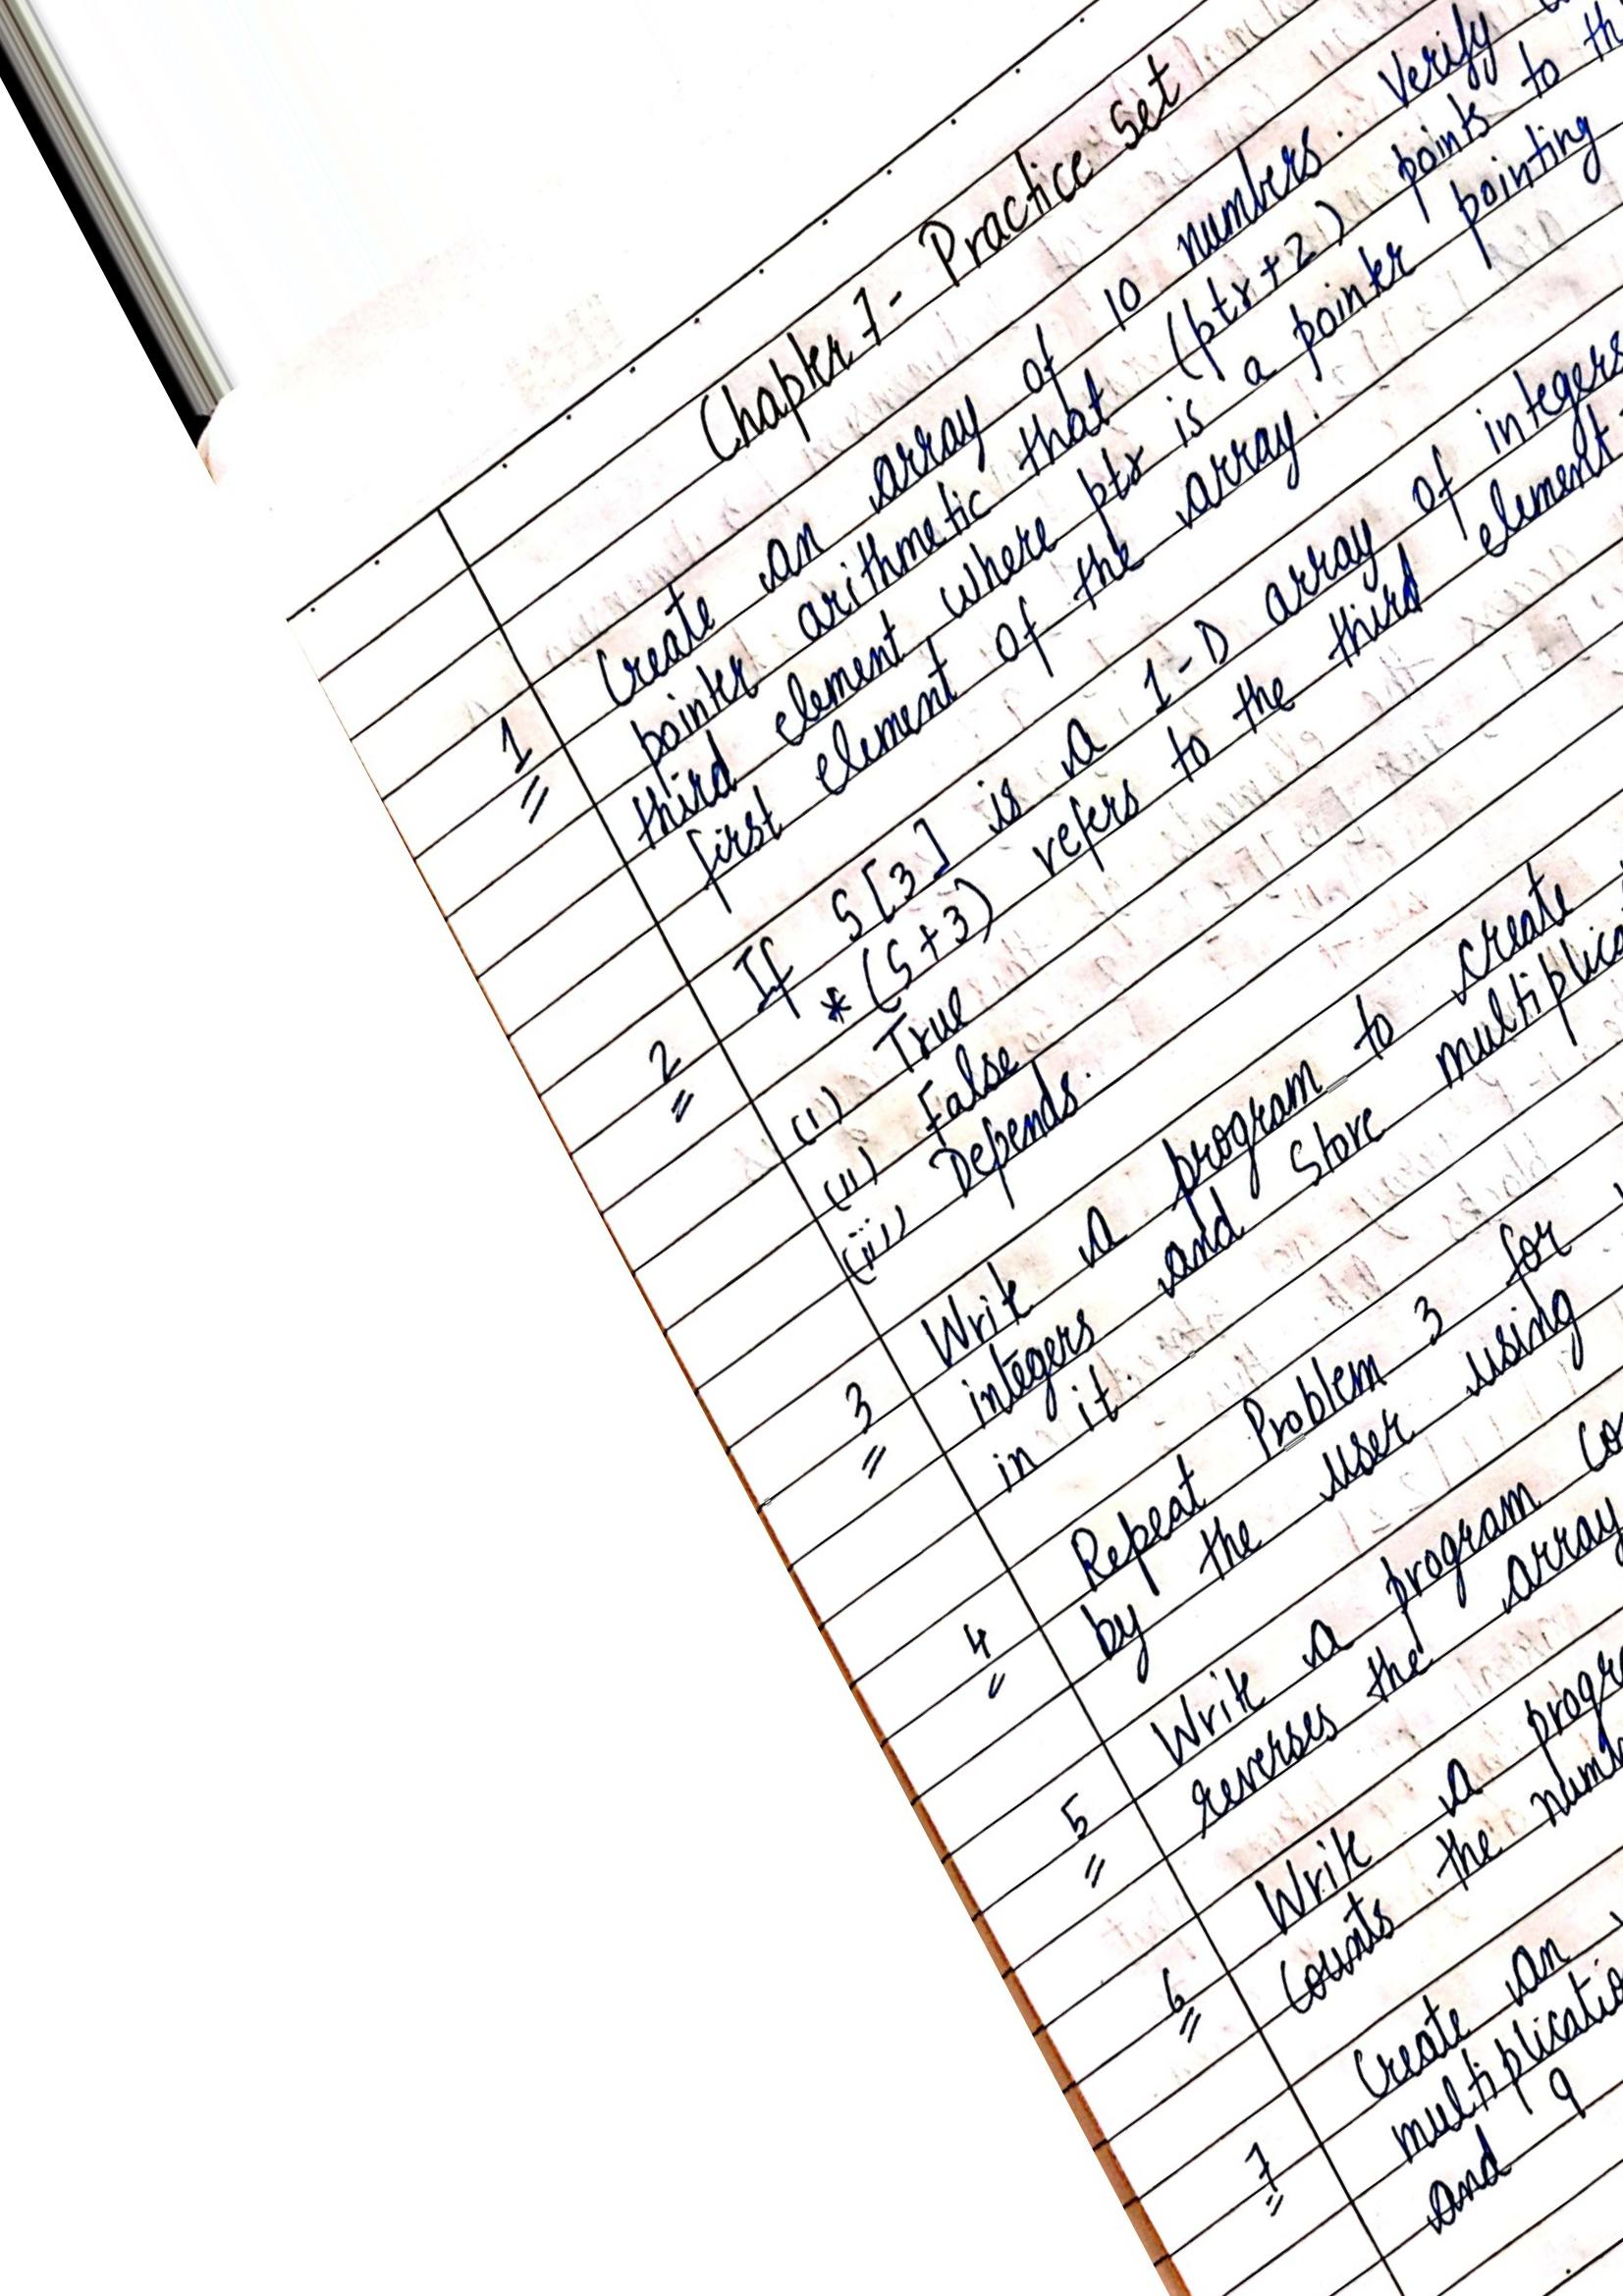 Chapter 7 - Practice Set
1 Create an array of 10 numbers. Verify
pointer arithmetic that (ptr+2) points to
third element where ptr is a pointer pointing
first element of the array.
2 If S[3] is a 1-D array of integers
*(S+3) refers to the third element
(i) True
(ii) False
(iii) Depends.
3 Write a program to create
integers and store
in it.
4 Repeat Problem 3 for
by the user using
5 Write a program
reverses the array
6 Write a
counts the
7 Create an
multiplication
and 9